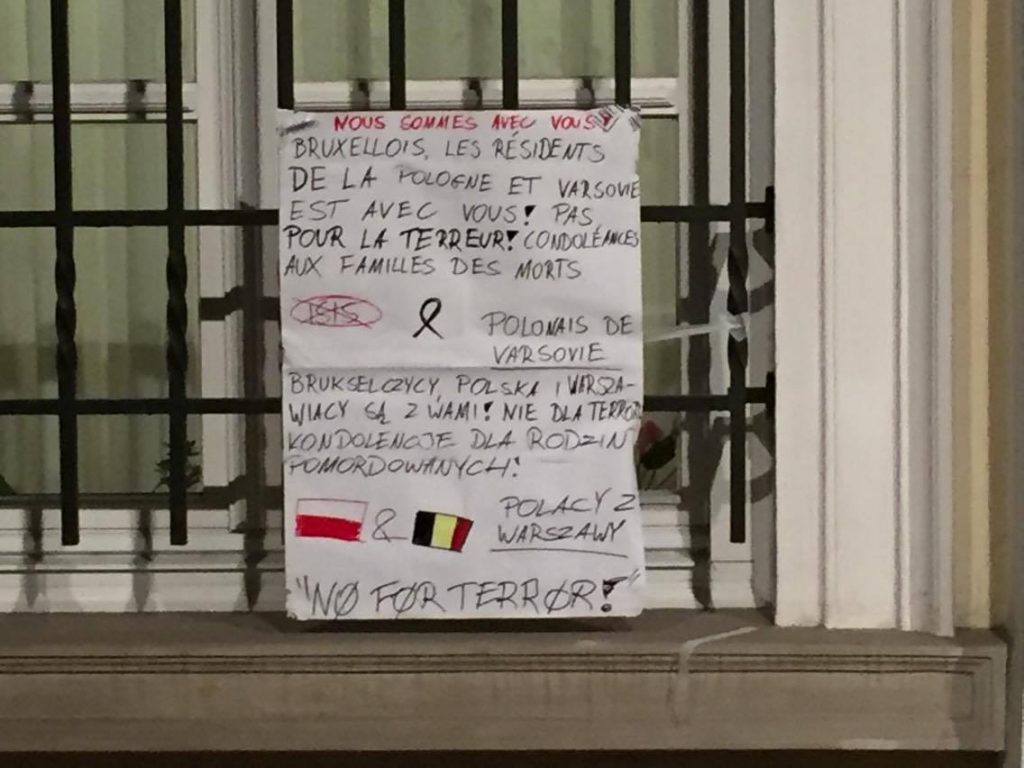 NOUS SOMMES AVEC VOUS!
BRUXELLOIS, LES RÉSIDENTS
DE LA POLOGNE ET VARSOVIE
EST AVEC VOUS! PAS
POUR LA TERREUR! CONDOLÉANCES
AUX FAMILLES DES MORTS
ISIS
POLONAIS DE
VARSOVIE
BRUKSELCZYCY, POLSKA I WARSZA-
WIACY SĄ Z WAMI! NIE DLA TERRORU
KONDOLENCJE DLA RODZIN
POMORDOWANYCH!
POLACY Z
& WARSZAWY
"NØ FØR TERRØR!"